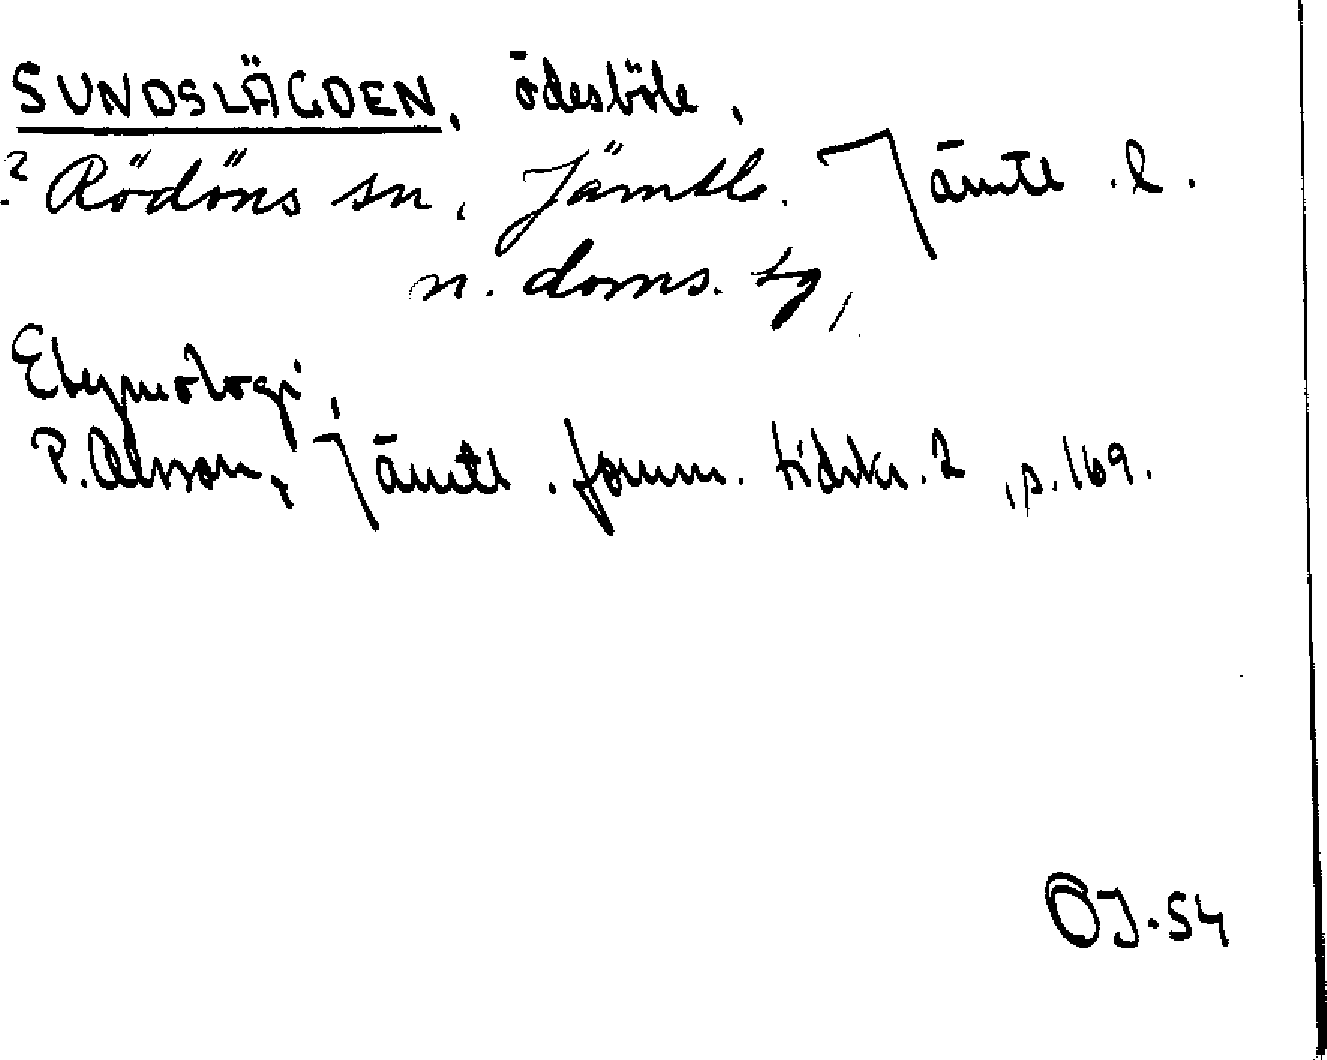 SUNDSLÄGDEN, ödesböle,
? Rödöns sn, Jämtl. Jämtl. l.
n. doms. tg,
Etymologi,
P. Olsson, Jämtl. fornm. tidskr. 2, p. 169.
ÖJ. 54